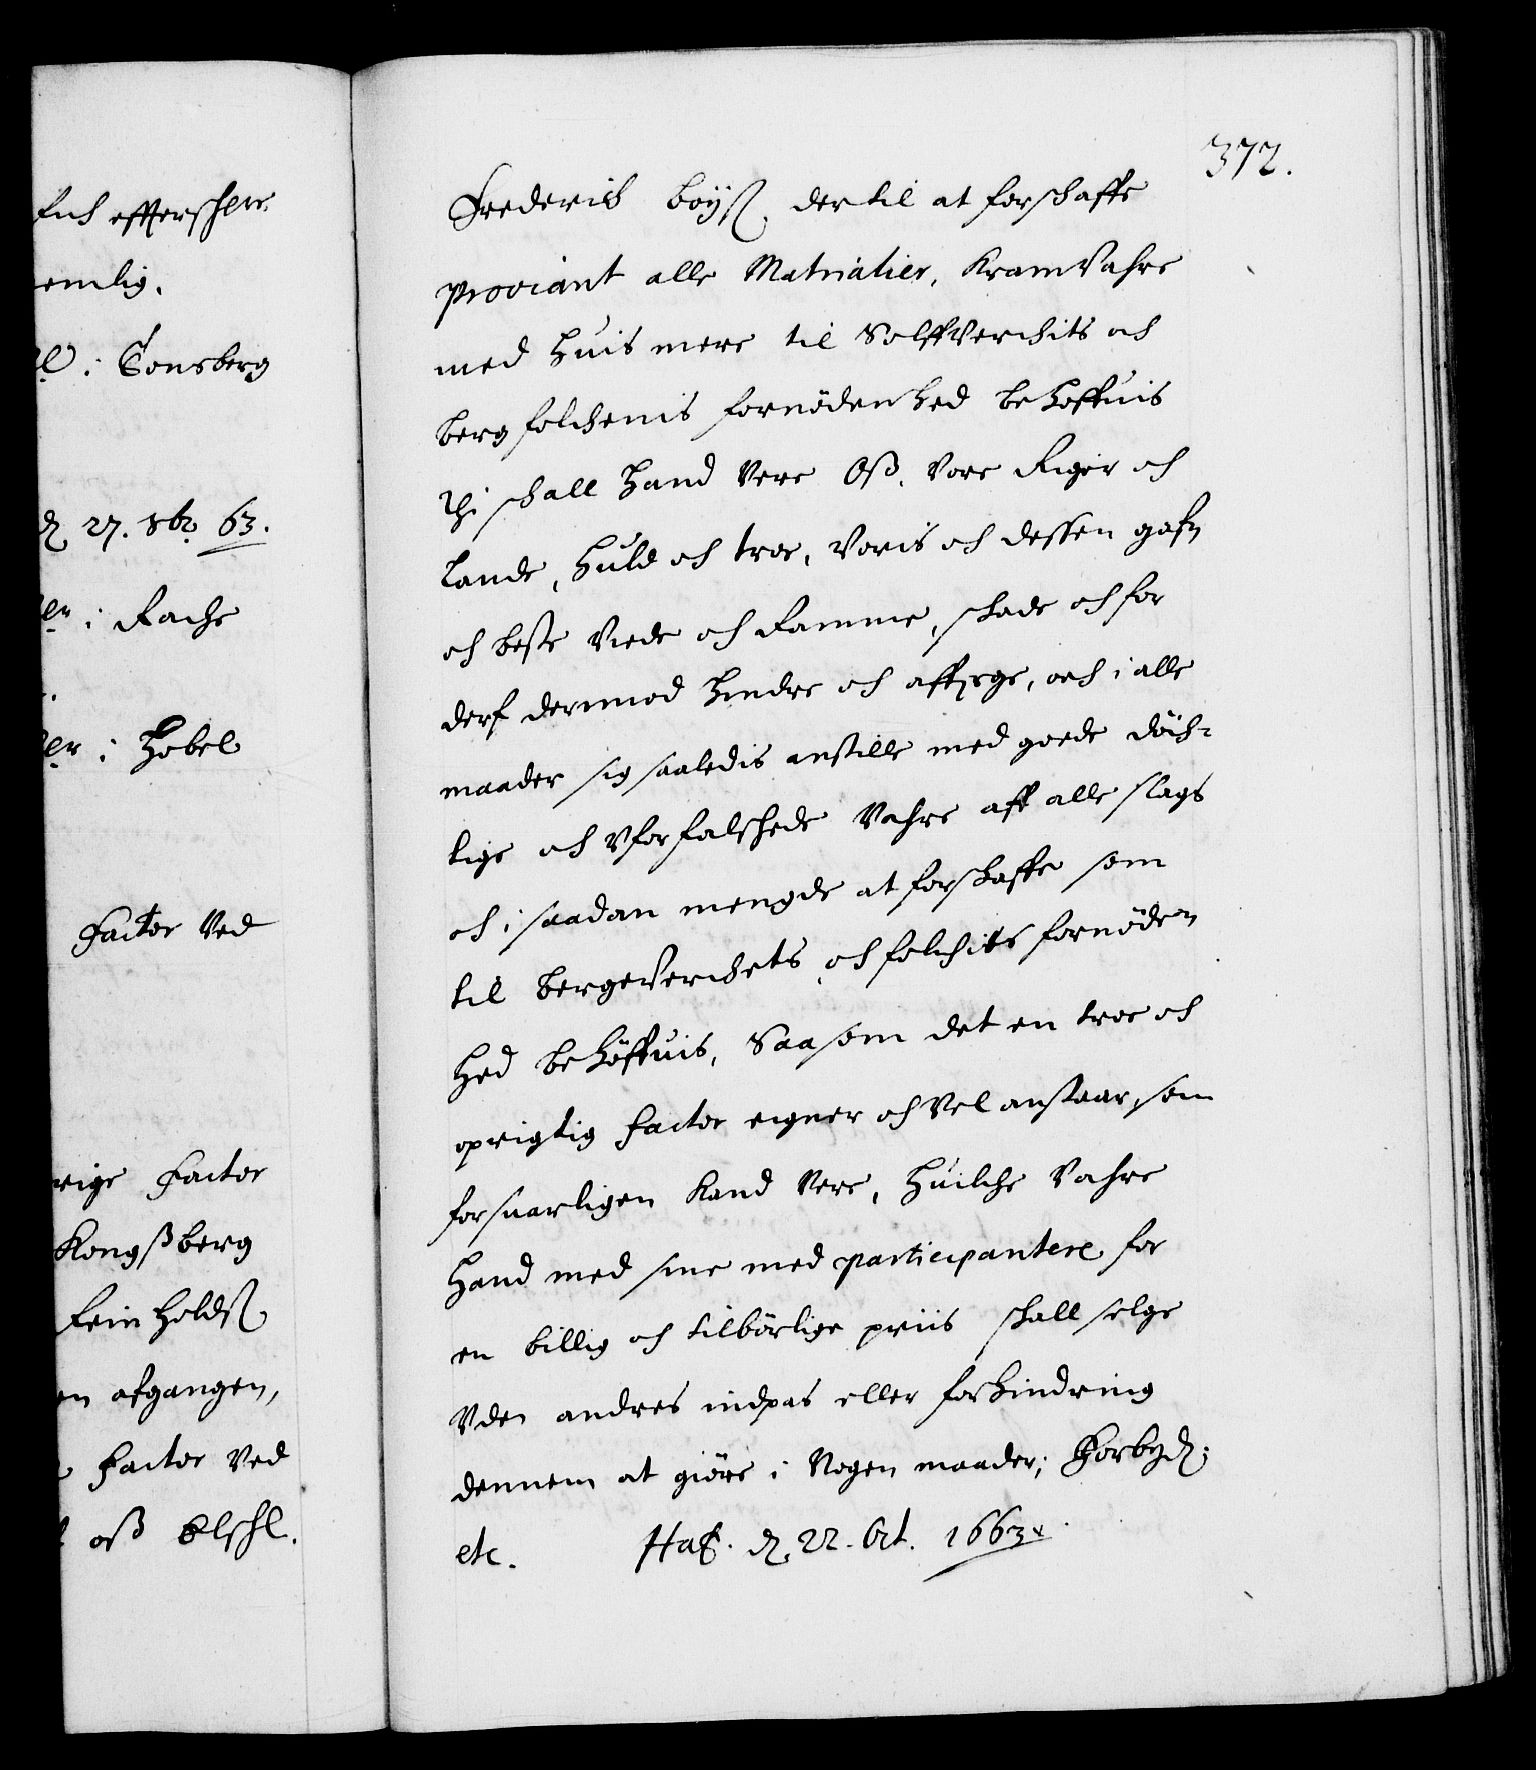 effterschr.
emlig.
i Tonsberg
27. 8br. 63.
i Rache
i Hobel
Factor Ved
rige Factor
Kongßberg
Reinholdß
en afgangen,
Factor Ved
oß Elschl.
372.
Frederich böyß dertil at forschaffe
proviant alle Matrialier, Kram Vahre
med huis mere til Sølffverchits och
berg folchenis fornödenhed behoffuis
Thi schall hand Vere Oß, Vore Riger och
Lande, huld och troe, Voris och dessen gafn
och beste Viede och Ramme, schade och for
derf dermod hindre och affverge, och i alle
maader sig saaledis anstille med goede döch-
lige och Vforfalschede Vahre aff alle slags
och i saadan mengde at forschaffe som
til bergverchets och folchits fornöden
hed behöffuis, Saasom det en troe och
oprigtig factor eigner och Vel anstaar, som
forsuarligen Kand Vere, huilche Vahre
hand med sine med participantere for
en billig och tilbörlige priis schall selge
Vden andres indpas eller forhindring
dennem at giöre i Nogen maader; Forbyd:
etc. Haf. d. 22. Oct. 1663.